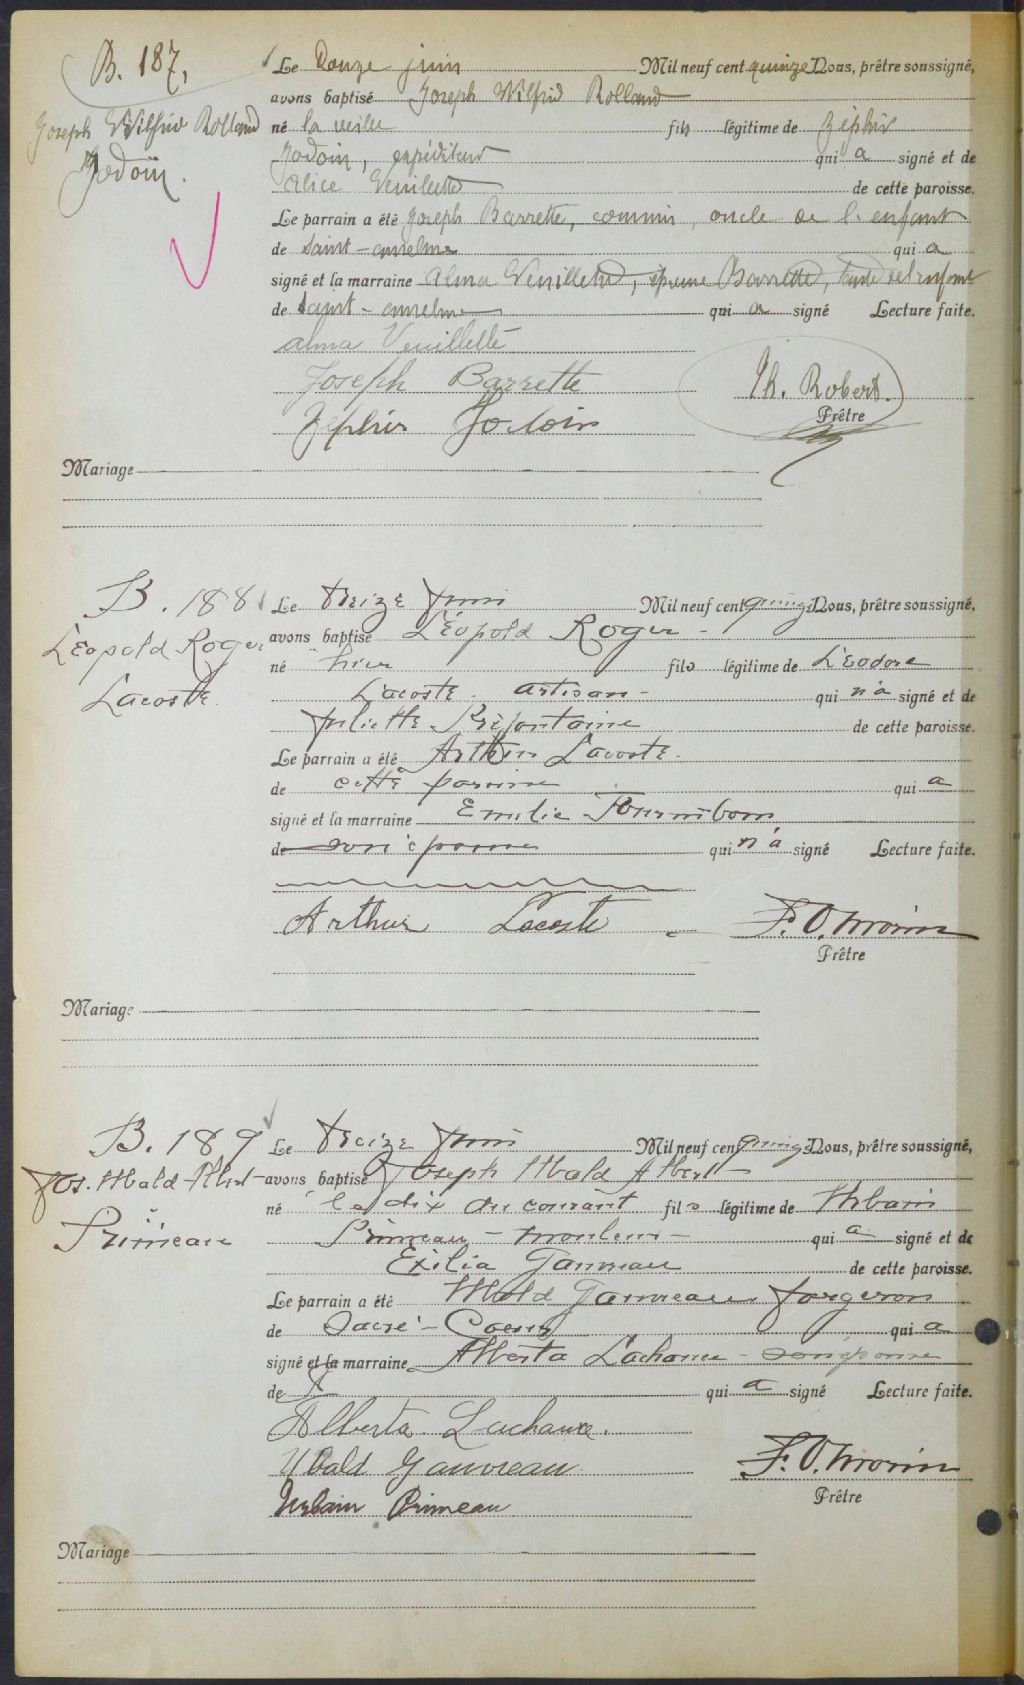 B. 187.
Joseph Wilfrid Rolland
Jodoin.
Le Douze juin Mil neuf cent quinze Nous, prêtre soussigné,
avons baptisé Joseph Wilfrid Rolland
né la veille fils légitime de Zéphir
Jodoin, expéditeur qui a signé et de
Alice Veuillette de cette paroisse.
Le parrain a été Joseph Barrette, commis, oncle de l'enfant
de Saint-anselme qui a
signé et la marraine Alma Veuillette, épouse Barrette, tante de l'enfant
de Saint-anselme qui a signé Lecture faite.
alma Veuillette
Joseph Barrette
Zephir Jodoin
Th. Robert.
Prêtre
Mariage
B. 188
Léopold Roger
Lacoste.
Le treize juin Mil neuf cent quinze Nous, prêtre soussigné,
avons baptisé Léopold Roger -
né hier fils légitime de Léodore
Lacoste. artisan - qui n'a signé et de
Juliette Préfontaine de cette paroisse.
Le parrain a été Arthur Lacoste.
de cette paroisse qui a
signé et la marraine Emilie
de son épouse qui n'a signé Lecture faite.
Arthur Lacoste
F. O. Morin
Prêtre
Mariage
B. 189
Jos. Ubald Albert
Primeau
Le treize juin Mil neuf cent quinze Nous, prêtre soussigné,
avons baptisé Joseph Ubald Albert -
né le dix du courant fils légitime de Urbain
Primeau - mouleur - qui a signé et de
Exilia Gauvreau de cette paroisse.
Le parrain a été Ubald Gauvreau forgeron
de Sacré-Coeur qui a
signé et la marraine Alberta Lachance - son épouse
de qui a signé Lecture faite.
Alberta Lachance.
Ubald Gauvreau
Urbain Primeau
F. O. Morin
Prêtre
Mariage